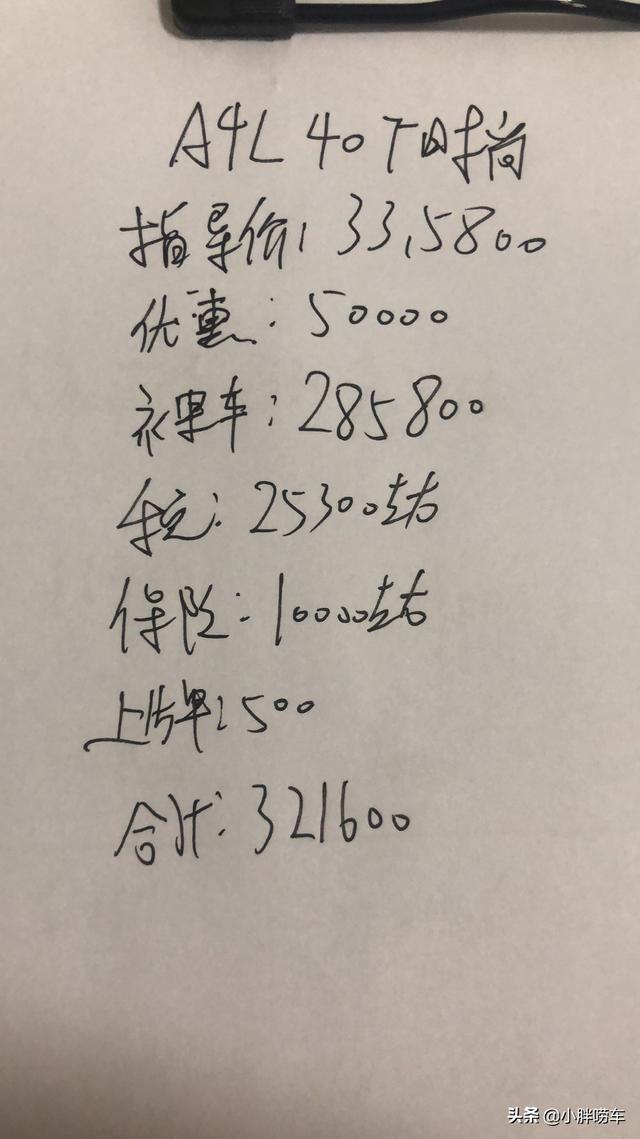 A4L 40T时尚
指导价:33,5800
优惠:50000
裸车:285800
税:25300左右
保险:10000左右
上牌:500
合计:321600
头条 @小胖唠车